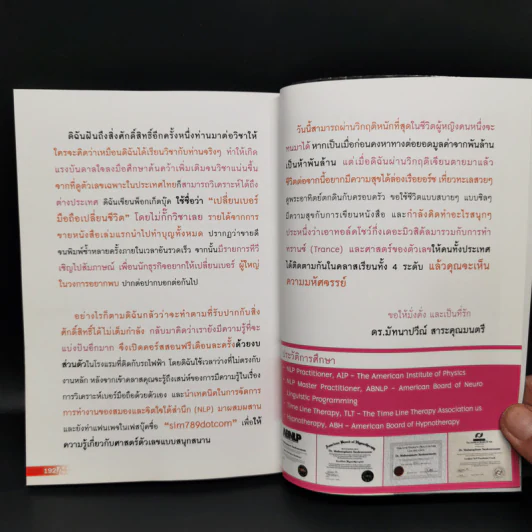 ดิฉันฝันถึงสิ่งศักดิ์สิทธิ์อีกครั้งหนึ่งท่านมาต่อวิชาให้
ใครจะคิดว่าเหมือนดิฉันได้เรียนวิชากับท่านจริงๆ ทำให้เกิด
แรงบันดาลใจลงมือศึกษาค้นคว้าเพิ่มเติมจนวิชาแน่นขึ้น
จากที่ดูตัวเลขเฉพาะในประเทศไทยก็สามารถวิเคราะห์ได้ถึง
ต่างประเทศ ดิฉันเขียนพ็อกเก็ตบุ๊ค ใช้ชื่อว่า "เปลี่ยนเบอร์
มือถือเปลี่ยนชีวิต" โดยไม่กั๊กวิชาเลย รายได้จากการ
ขายหนังสือเล่มแรกนำไปทำบุญทั้งหมด ปรากฏว่าขายดี
จนพิมพ์ซ้ำหลายครั้งภายในเวลาอันรวดเร็ว จากนั้นมีรายการทีวี
เชิญไปสัมภาษณ์ เพื่อนนักธุรกิจอยากให้เปลี่ยนเบอร์ ผู้ใหญ่
ในวงการอยากพบ ปากต่อปากบอกต่อกันไป
อย่างไรก็ตามดิฉันกลัวว่าจะทำตามที่รับปากกับสิ่ง
ศักดิ์สิทธิ์ได้ไม่เต็มกำลัง กลับมาคิดว่าเรายังมีความรู้ที่จะ
แบ่งปันอีกมาก จึงเปิดคอร์สสอนฟรีเดือนละครั้งด้วยงบ
ส่วนตัวในโรงแรมที่ติดกับรถไฟฟ้า โดยดิฉันใช้เวลาว่างที่ไม่ตรงกับ
งานหลัก หลังจากเข้าคลาสคุณจะรู้ถึงเสน่ห์ของการมีความรู้ในเรื่อง
การวิเคราะห์เบอร์มือถือด้วยตัวเอง และนำเทคนิคในการจัดการ
การทำงานของสมองและจิตใต้สำนึก (NLP) มาผสมผสาน
และยังทำแฟนเพจในเฟสบุ๊คชื่อ "sim789dotcom" เพื่อให้
ความรู้เกี่ยวกับศาสตร์ตัวเลขแบบสนุกสนาน
192
วันนี้สามารถผ่านวิกฤติหนักที่สุดในชีวิตผู้หญิงคนหนึ่งจะ
ทนมาได้ หากเป็นเมื่อก่อนคงหาทางต่อยอดมูลค่าจากพันล้าน
เป็นห้าพันล้าน แต่เมื่อดิฉันผ่านวิกฤติเฉียดตายมาแล้ว
ชีวิตต่อจากนี้อยากมีความสุขได้ล่องเรือยอร์ช เที่ยวทะเลสวยๆ
ดูพระอาทิตย์ตกดินกับครอบครัว ขอใช้ชีวิตแบบสบายๆ แบบชิลๆ
มีความสุขกับการเขียนหนังสือ และกำลังคิดทำอะไรสนุกๆ
ประหนึ่งว่าเอาทอล์คโชว์กึ่งเดอะมิวสิคัลมารวมกับการทำ
ทรานซ์ (Trance) และศาสตร์ของตัวเลขให้คนทั้งประเทศ
ได้ติดตามกันในคลาสเรียนทั้ง 4 ระดับ แล้วคุณจะเห็น
ความมหัศจรรย์
ขอให้มั่งคั่ง และเป็นที่รัก
ดร.มัทนาปวีณ์ สาระคุณมนตรี
ประวัติการศึกษา
NLP Practitioner, AIP - The American Institute of Physics
NLP Master Practitioner, ABNLP - American Board of Neuro
Linguistic Programming
Time Line Therapy, TLT - The Time Line Therapy Association us
Hypnotherapy, ABH - American Board of Hypnotherapy